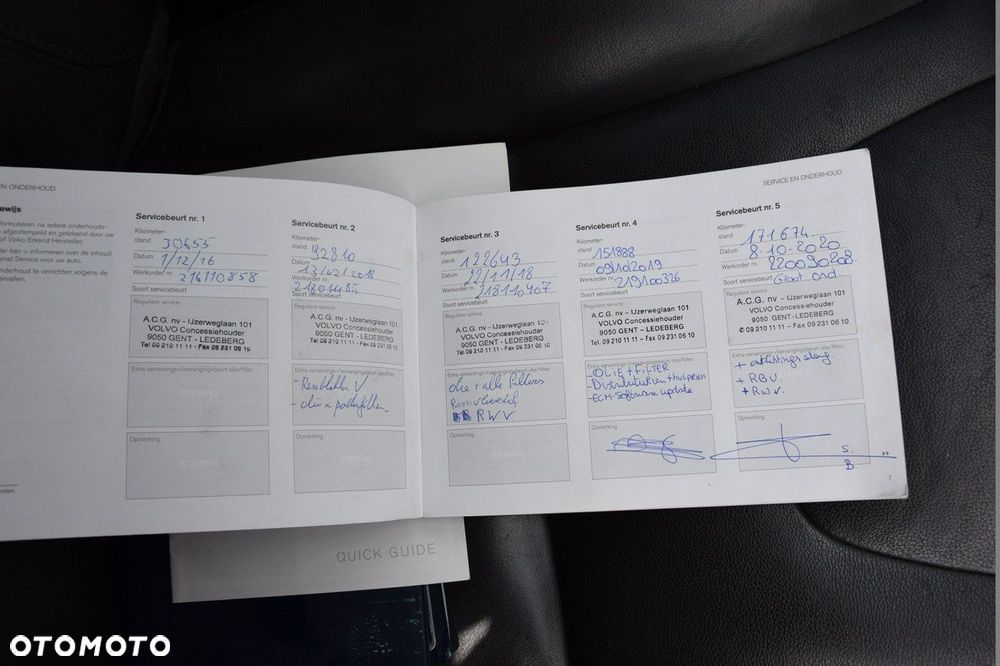 EN ONDERHOUD
ewijs
formulieren na iedere onderhouds-
afgestempeld en getekend door uw
of Volvo Erkend Hersteller.
ler kan u informeren over de inhoud
ginal Service voor uw auto.
onderhoud te verrichten volgens de
ervallen.
Servicebeurt nr. 1
Kilometer-
stand 30655
Datum 1/12/16
Werkorder nr. 216110858
Soort servicebeurt
Reguliere service
A.C.G. nv - IJzerweglaan 101
VOLVO Concessiehouder
9050 GENT - LEDEBERG
Tel 09 210 11 11 - Fax 09 231 06 10
Extra verversings-/vervangingsbeurt olie/filter:
STEMPEL
Opmerking
STEMPEL
Servicebeurt nr. 2
Kilometer-
stand 92810
Datum 13/02/2018
Werkorder nr.
Soort servicebeurt
Reguliere service
A.C.G. nv - IJzerweglaan 101
VOLVO Concessiehouder
9050 GENT - LEDEBERG
Tel 09 210 11 11 - Fax 09 231 06 10
Extra verversings-/vervangingsbeurt olie/filter:
Opmerking
STEMPEL
Servicebeurt nr. 3
Kilometer-
stand 122643
Datum 22/11/18
Werkorder nr. 218110407
Soort servicebeurt
Reguliere service
A.C.G. nv - IJzerweglaan 101
VOLVO Concessiehouder
9050 GENT - LEDEBERG
Tel 09 210 11 11 - Fax 09 231 06 10
Extra verversings-/vervangingsbeurt olie/filter:
olie + alle filters
Remvloeistof
RWV
Opmerking
STEMPEL
SERVICE EN ONDERHOUD
Servicebeurt nr. 4
Kilometer-
stand 151888
Datum 09/10/2019
Werkorder nr. 219100326
Soort servicebeurt
Reguliere service
A.C.G. nv - IJzerweglaan 101
VOLVO Concessiehouder
9050 GENT - LEDEBERG
Tel 09 210 11 11 - Fax 09 231 06 10
- OLIE + FILTER
- Distributieriem + hulpriem
- ECM-Software update
Opmerking
Servicebeurt nr. 5
Kilometer-
stand 171674
Datum 8-10-2020
Werkorder nr. 220090208
Soort servicebeurt Groot ond.
Reguliere service
A.C.G. nv - IJzerweglaan 101
VOLVO Concessiehouder
9050 GENT - LEDEBERG
✆ 09 210 11 11 - Fax 09 231 06 10
Extra verversings-/vervangingsbeurt olie/filter:
+ ontluchtings slang
+ RBV.
+ RWV.
Opmerking
S.
B.
7
QUICK GUIDE
OTOMOTO